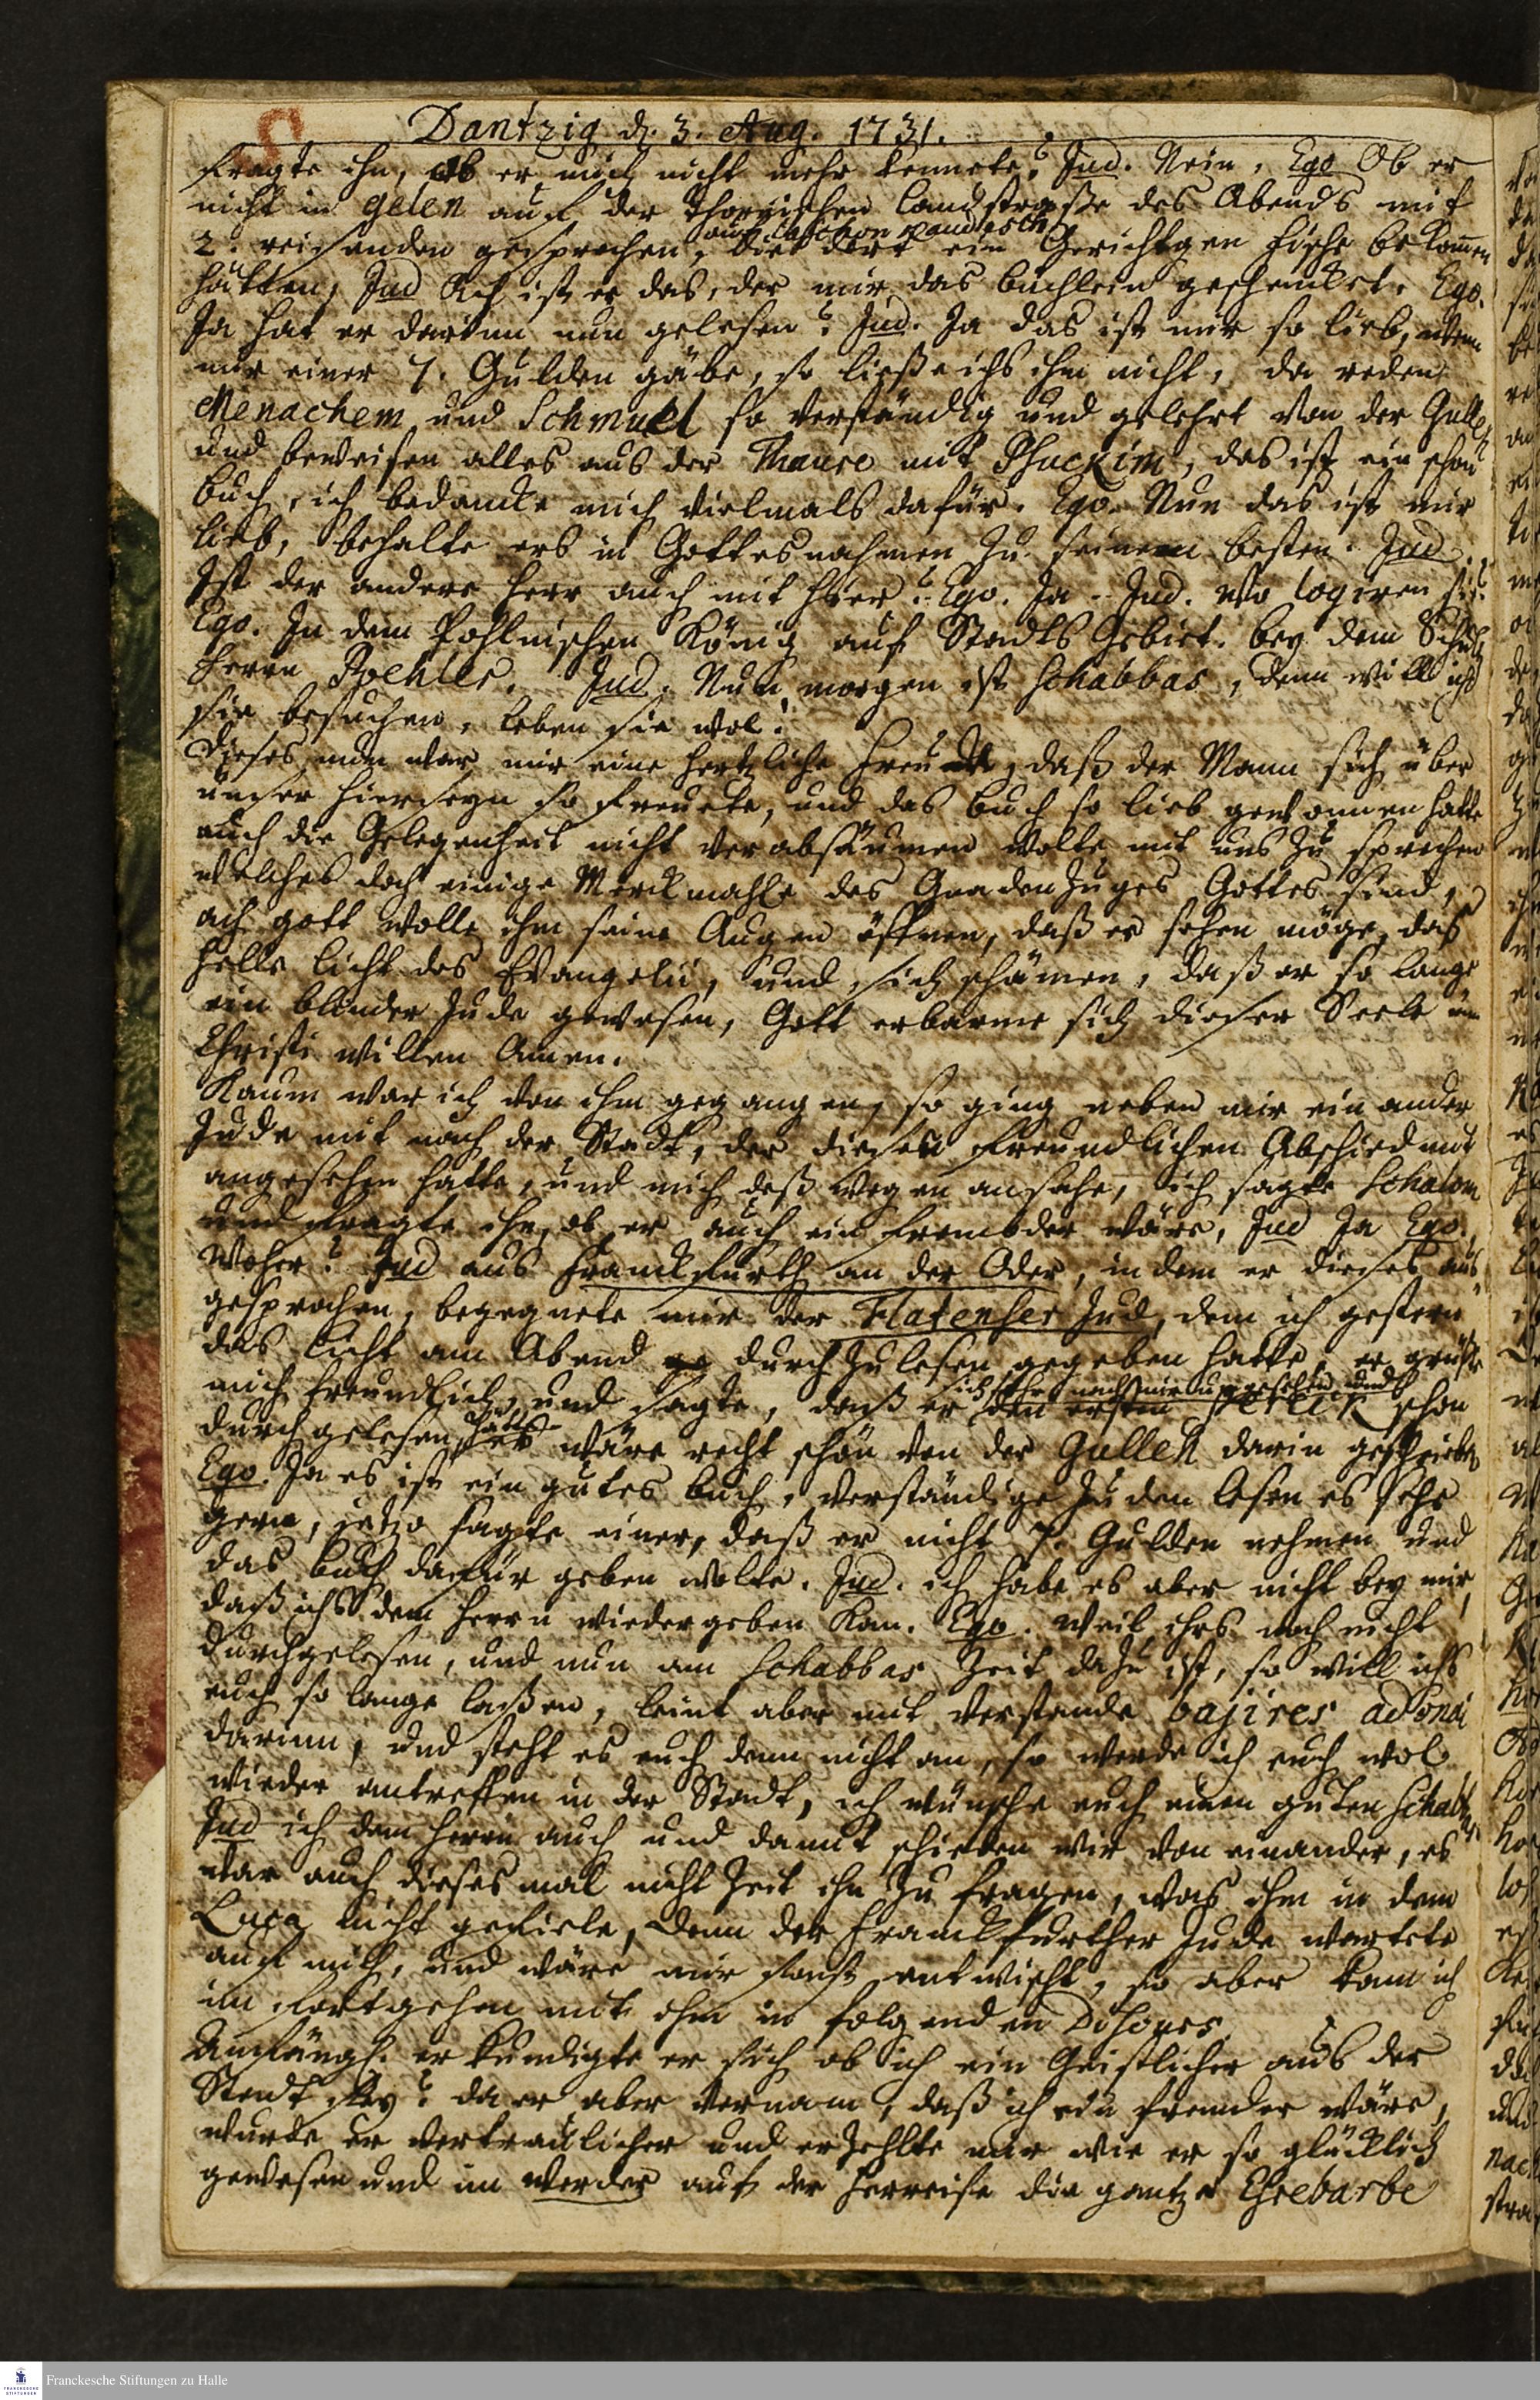 Dantzig d. 3. Aug. 1731.
fragte ihn, ob er mich nicht mehr kennete? Jud. Nein, Ego Ob er
nicht in gelen auf der Thornischen Landstraße des Abends mit
auf laschon kaudesch
2. reisenden gesprochen, die dort ein Gerichtgen Fische bekom̄en
hätten, Jud Ach ist er das, der mir das büchlein geschencket. Ego.
Ja hat er darinn nun gelesen? Jud. Ja das ist mir so lieb, wenn
mir einer 7. Gulden gäbe, so ließe ichs ihm nicht, da reden
Menachem und Schmuel so verständig und gelehrt von der Gulleh
und beweisen alles aus der Thaure mit Psuckim, das ist ein schön
buch, ich bedancke mich vielmals dafür. Ego. Nun das ist mir
lieb, behalte ers in Gottes nahmen zu seinem besten. Jud.
Ist der andere Herr auch mit hier? Ego. Ja. Jud. Wo logiren sie?
Ego. In dem Pohlnischen König auf Stadts Gebiet. bey dem Schult
Herrn Roehler. Jud. Nun, morgen ist Schabbas, denn will ich
sie besuchen, leben sie wol.
Dieses nun war mir eine hertzliche Freude, daß der Mann sich über
unser hierseyn so freuete, und das buch so lieb gewonnen hatte
auch die Gelegenheit nicht verabsäumen wolte mit uns zu sprechen
welches doch einige Merckmahle des Gnadenzuges Gottes sind,
ach Gott wolle ihm seine Augen öffnen, daß er sehen möge, das
helle Licht des Evangelii, und sich schämen, daß er so lange
ein blinder Jude gewesen, Gott erbarme sich dieser Seele um
Christi willen Amen.
Kaum war ich von ihm gegangen, so ging neben mir ein ander
Jude mit nach der Stadt, der diesen freundlichen Abschied mit
angesehen hatte, und mich deß wegen ansahe, ich sagte Schalom
und fragte ihn, ob er auch ein frembder wäre, Jud Ja Ego.
Woher? Jud aus Franckfurth an der Oder, in dem er dieses aus
gesprochen, begegnete mir der Flatenser Jud, dem ich gestern
das Licht am Abend durchzulesen gegeben hatte, er grüßte
sich sehr nach mir umgesehen und
mich freundlich, und sagte, daß er den ersten Perick schon
durchgelesen, hätte es wäre recht schön von der Gulleh darin geschrieben
Ego. Ja es ist ein gutes buch, verständige Juden lesen es sehr
gern, jetzo sagte einer, daß er nicht 7. Gulden nehmen und
das buch dafür geben wolte. Jud. ich habe es aber nicht bey mir,
daß ichs dem Herrn wiedergeben kan. Ego. weil ihrs noch nicht
durchgelesen, und nun am Schabbas Zeit dazu ist, so will ichs
euch so lange laßen, leint aber mit Verstande bajires adonai
darinn, und steht es euch denn nicht an, so werde ich euch wol
wieder antreffen in der Stadt, ich wünsche euch einen guten Schabbas
Jud ich dem Herrn auch und damit schieden wir von einander, es
war auch dieses mal nicht Zeit ihn zu fragen, was ihm in dem
Luca nicht gefiele, denn der Franckfurther Jude wartete
auf mich, und wäre mir sonst entwischt, so aber kam ich
im Fortgehen mit ihm in folgenden Discurs.
Anfängl. erkundigte er sich ob ich ein Geistlicher aus der
Stadt sey? da er aber vernam, daß ich ein fremder wäre,
wurde er vertraulicher und erzehlte mir wie er so glücklich
gewesen und im Werder auf der Herreise die gantze Ehrebarbe
Franckesche Stiftungen zu Halle